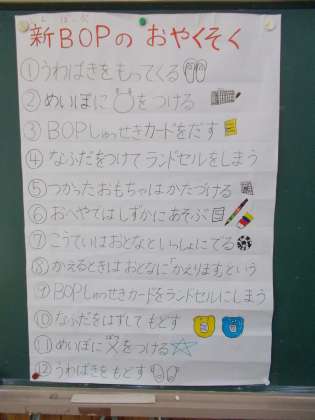 しん ぼっぷ
新BOPの おやくそく
①うわばきをもってくる
②めいぼに〇をつける
③BOPしゅっせきカードをだす
④なふだをつけてランドセルをしまう
⑤つかったおもちゃはかたづける
⑥おへやではしずかにあそぶ
⑦こうていはおとなといっしょにでる
⑧かえるときはおとなに「かえります」という
⑨BOPしゅっせきカードをランドセルにしまう
⑩なふだをはずしてもどす
⑪めいぼに をつける
⑫うわばきをもどす